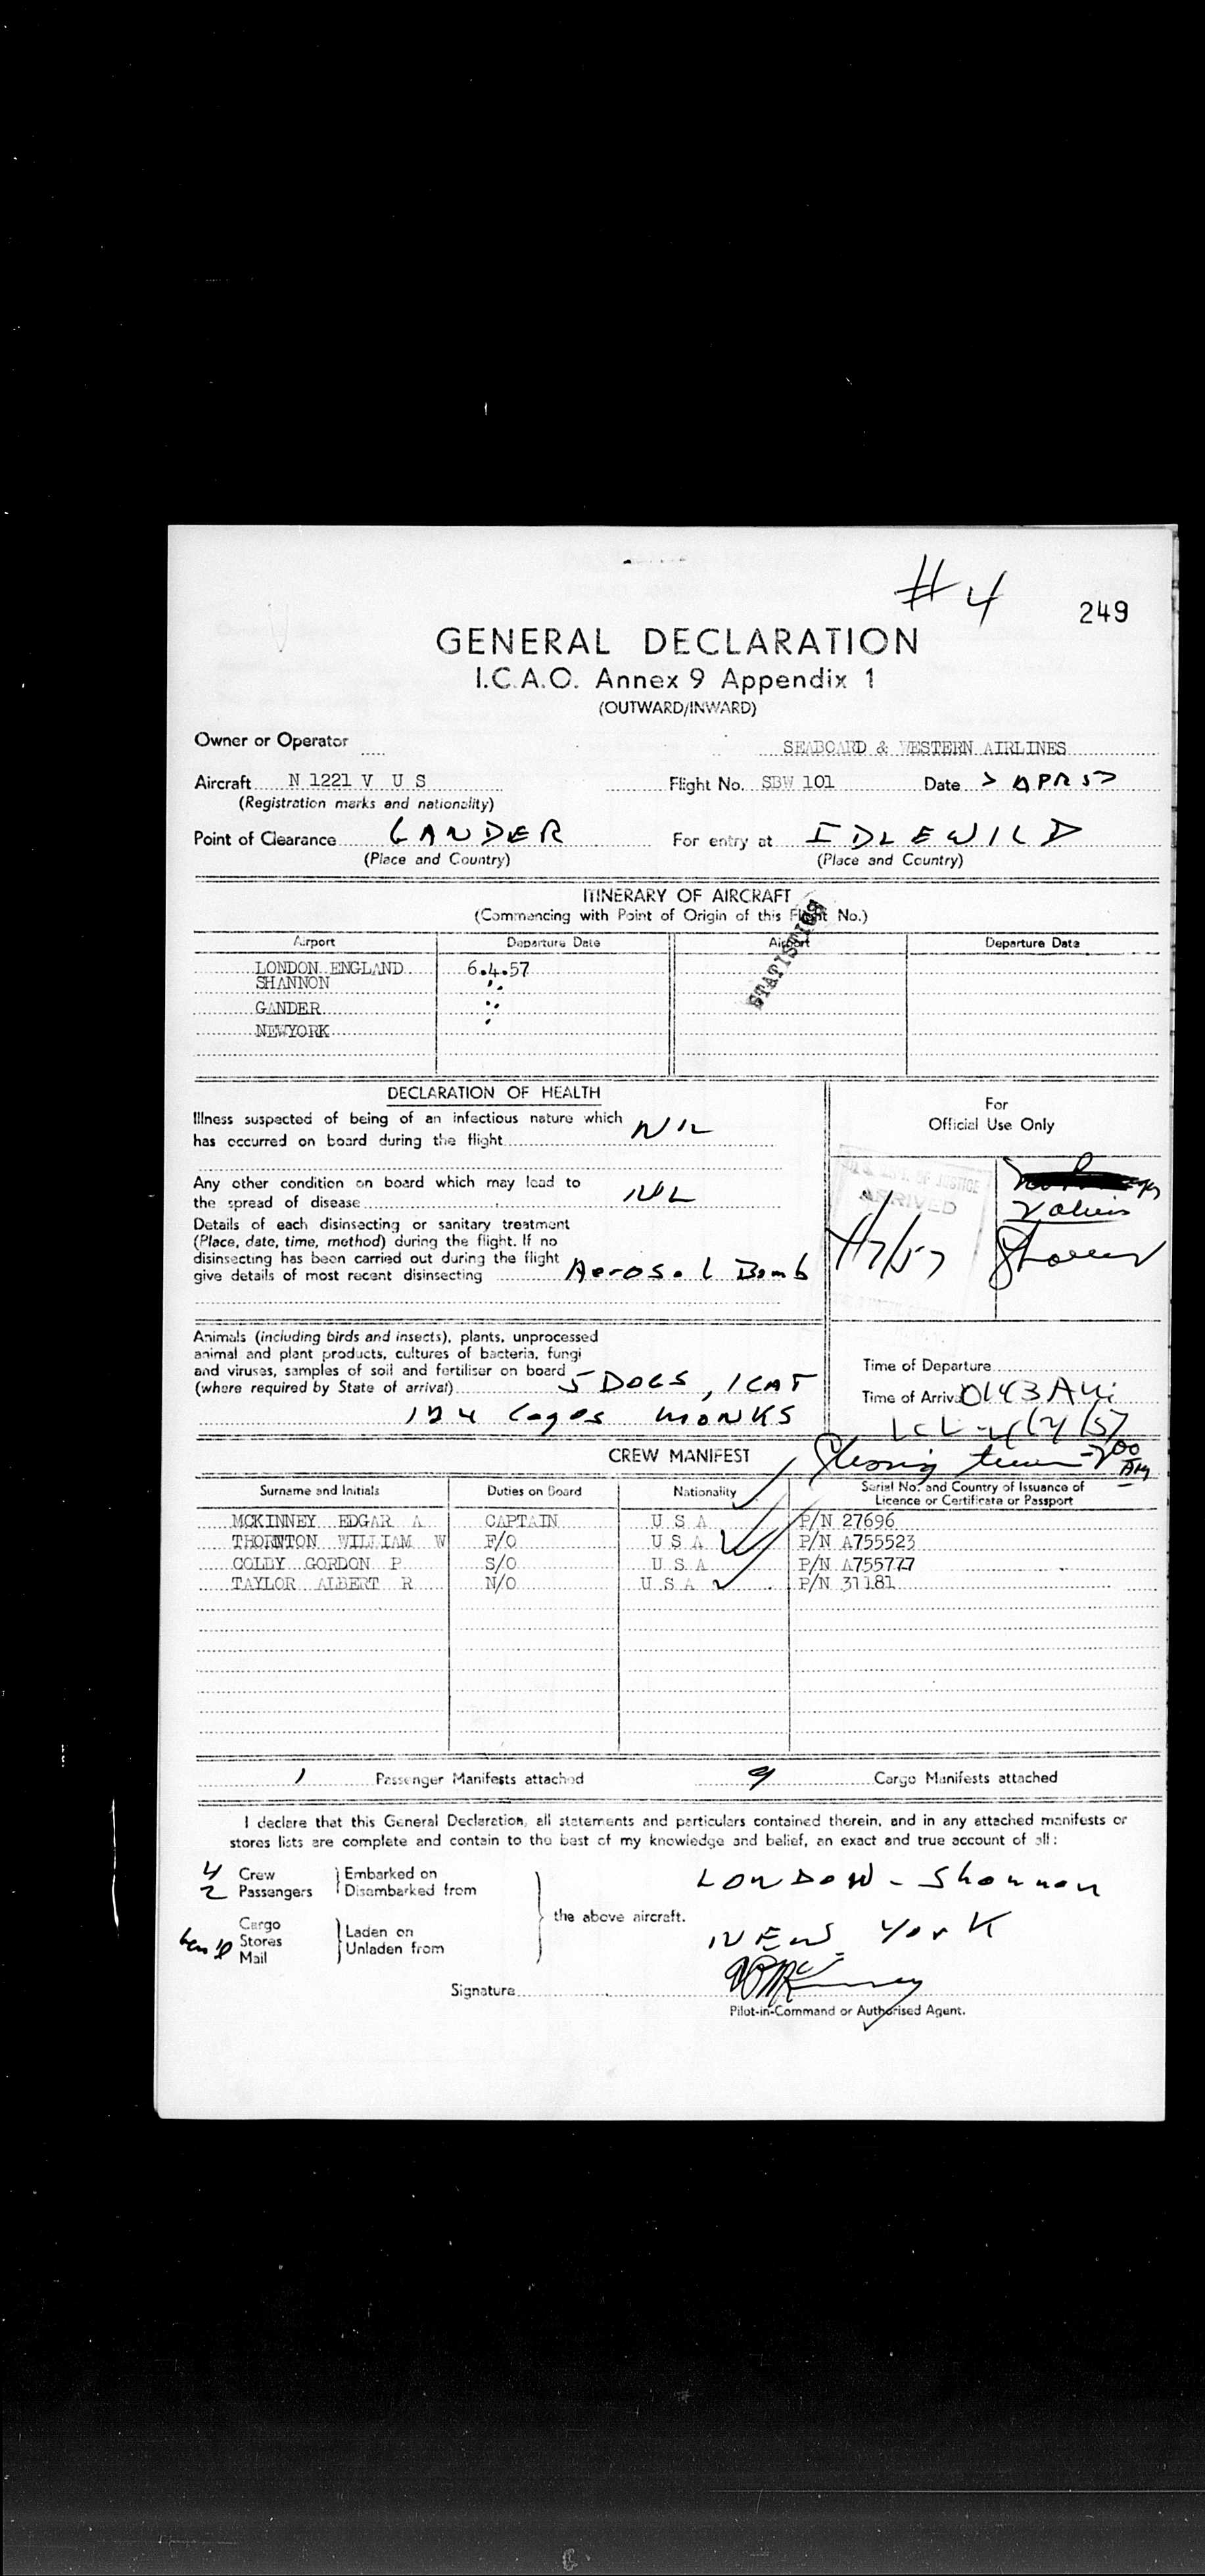 #4
249
GENERAL DECLARATION
I.C.A.O. Annex 9 Appendix 1
(OUTWARD/INWARD)
Owner or Operator SEABOARD & WESTERN AIRLINES
Aircraft N 1221 V U S Flight No. SBW 101 Date 7 APR 57
(Registration marks and nationality)
Point of Clearance GANDER For entry at IDLEWILD
(Place and Country) (Place and Country)
ITINERARY OF AIRCRAFT
(Commencing with Point of Origin of this Flight No.)
STATISTICS
Airport Departure Date Airport Departure Date
LONDON ENGLAND 6.4.57
SHANNON
GANDER
NEWYORK
DECLARATION OF HEALTH
Illness suspected of being of an infectious nature which
has occurred on board during the flight NIL
Any other condition on board which may lead to
the spread of disease NIL
Details of each disinsecting or sanitary treatment
(Place, date, time, method) during the flight. If no
disinsecting has been carried out during the flight
give details of most recent disinsecting Aerosol Bomb
Animals (including birds and insects), plants, unprocessed
animal and plant products, cultures of bacteria, fungi
and viruses, samples of soil and fertiliser on board
(where required by State of arrival) 5 DOGS, 1 CAT
124 Cages MONKS
For
Official Use Only
DEPT. OF JUSTICE
ARRIVED
4/7/57
Time of Departure
Time of Arrival 0143 AM
4/7/57
CREW MANIFEST
time - 2 00 AM
Surname and Initials Duties on Board Nationality Serial No. and Country of Issuance of
Licence or Certificate or Passport
MCKINNEY EDGAR A CAPTAIN U S A P/N 27696
THORNTON WILLIAM W F/O U S A P/N A755523
COLBY GORDON P S/O U S A P/N A755777
TAYLOR ALBERT R N/O U S A P/N 31181
1 Passenger Manifests attached 9 Cargo Manifests attached
I declare that this General Declaration, all statements and particulars contained therein, and in any attached manifests or
stores lists are complete and contain to the best of my knowledge and belief, an exact and true account of all:
4 Crew Embarked on LONDON - Shannon
2 Passengers Disembarked from
the above aircraft.
Cargo Laden on NEW YORK
Stores Unladen from
Mail
Signature
Pilot-in-Command or Authorised Agent.